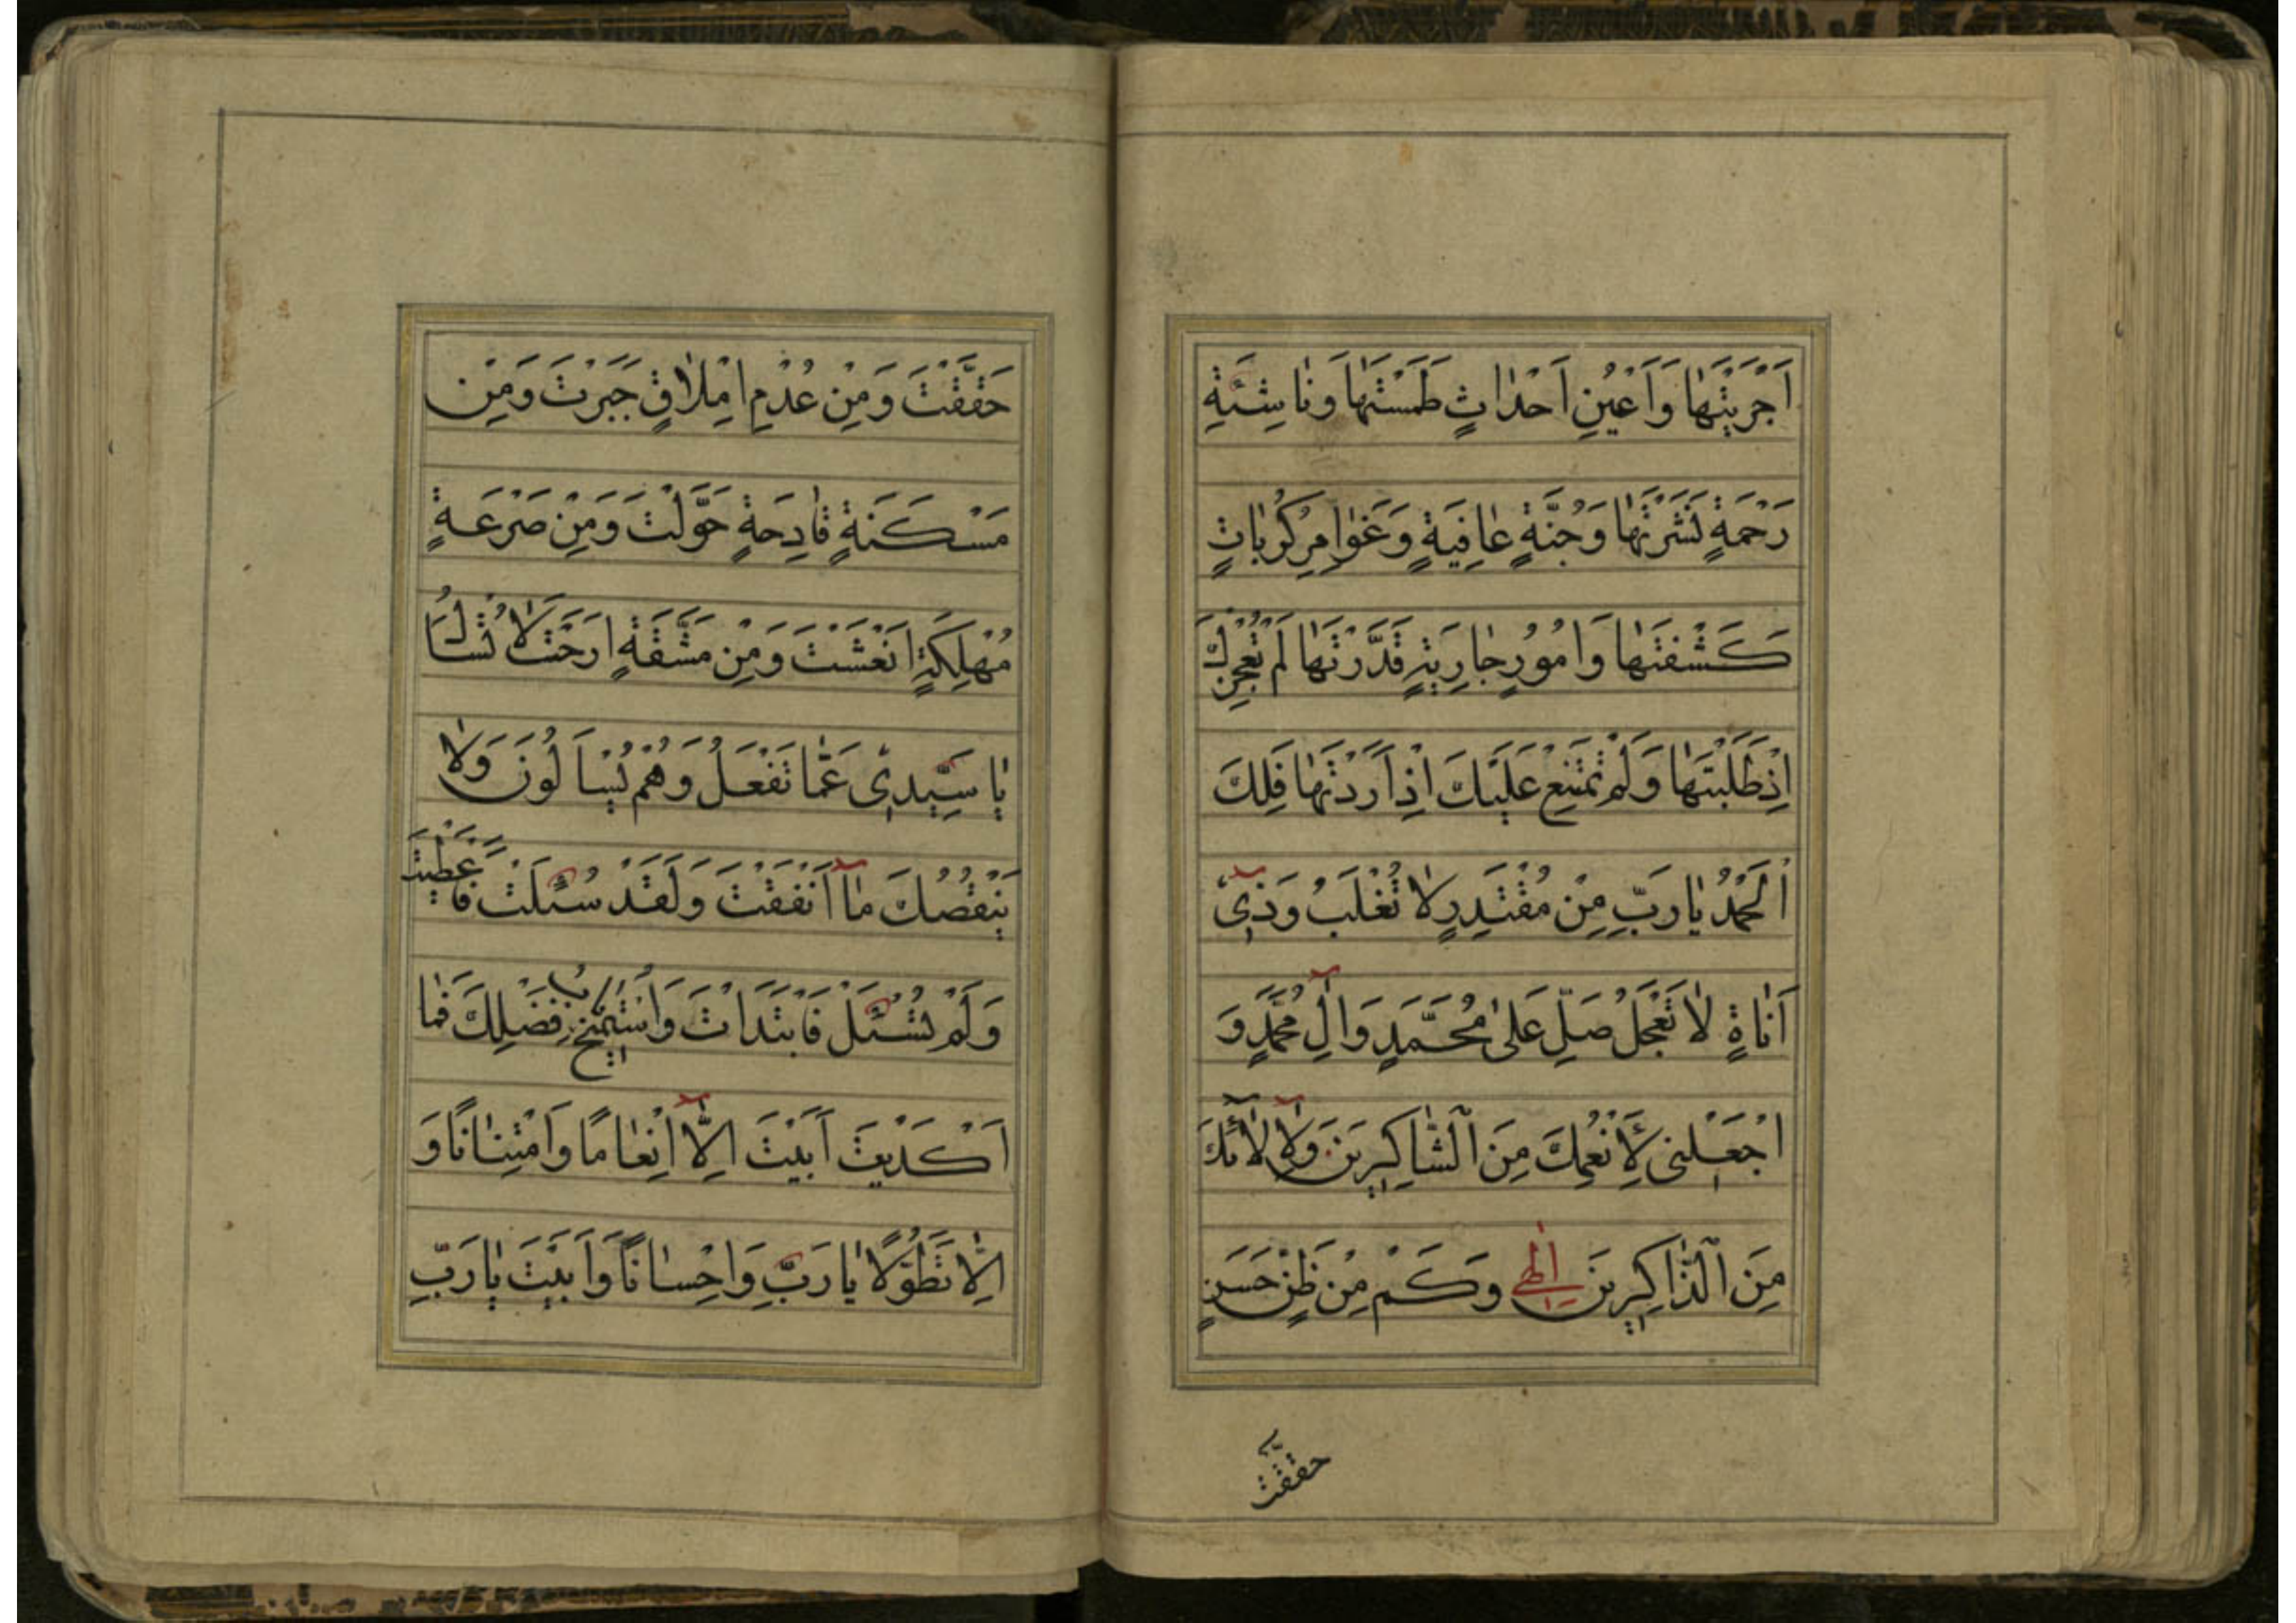 اَجْرَيْتَهٰا وَاَعْيُنِ اَحْدٰاثٍ طَمَسْتَهٰا وَنٰاشِئَةِ
رَحْمَةٍ نَشَرْتَهٰا وَجُنَّةِ عٰافِيَةٍ وَغَوٰامِرِ كُرُبٰاتٍ
كَشَفْتَهٰا وَاُمُورٍ جٰارِيَةٍ قَدَّرْتَهٰا لَمْ تُعْجِزْكَ
اِذْ طَلَبْتَهٰا وَلَمْ تَمْتَنِعْ عَلَيْكَ اِذْ اَرَدْتَهٰا فَلَكَ
اَلْحَمْدُ يٰا رَبِّ مِنْ مُقْتَدِرٍ لٰا تُغْلَبُ وَذِىٓ
اَنٰاةٍ لٰا تَعْجَلُ صَلِّ عَلىٰ مُحَمَّدٍ وَاٰلِ مُحَمَّدٍ وَ
اجْعَلْنى لِاَنْعُمِكَ مِنَ الشّٰاكِرينَ وَلِاٰلٰآئِكَ
مِنَ الذّٰاكِرينَ اِلٰهى وَكَمْ مِنْ ظَنٍّ حَسَنٍ
حَقَّقْتَ
حَقَّقْتَ وَمِنْ عُدْمِ اِمْلٰاقٍ جَبَرْتَ وَمِنْ
مَسْكَنَةٍ فٰادِحَةٍ حَوَّلْتَ وَمِنْ صَرْعَةٍ
مُهْلِكَةٍ اَنْعَشْتَ وَمِنْ مَشَقَّةٍ اَرَحْتَ لٰا تُسْـَٔلُ
يٰا سَيِّدِى عَمّٰا تَفْعَلُ وَهُمْ يُسْاَلُونَ وَلٰا
يَنْقُصُكَ مٰآ اَنْفَقْتَ وَلَقَدْ سُئِلْتَ فَاَعْطَيْتَ
وَلَمْ تُسْئَلْ فَابْتَدَاْتَ وَاسْتُميحَ بٰابُ فَضْلِكَ فَمٰا
اَكْدَيْتَ اَبَيْتَ اِلّٰآ اِنْعٰامًا وَامْتِنٰانًا وَ
اِلّٰا تَطَوُّلًا يٰا رَبِّ وَاِحْسٰانًا وَاَبَيْتَ يٰا رَبِّ